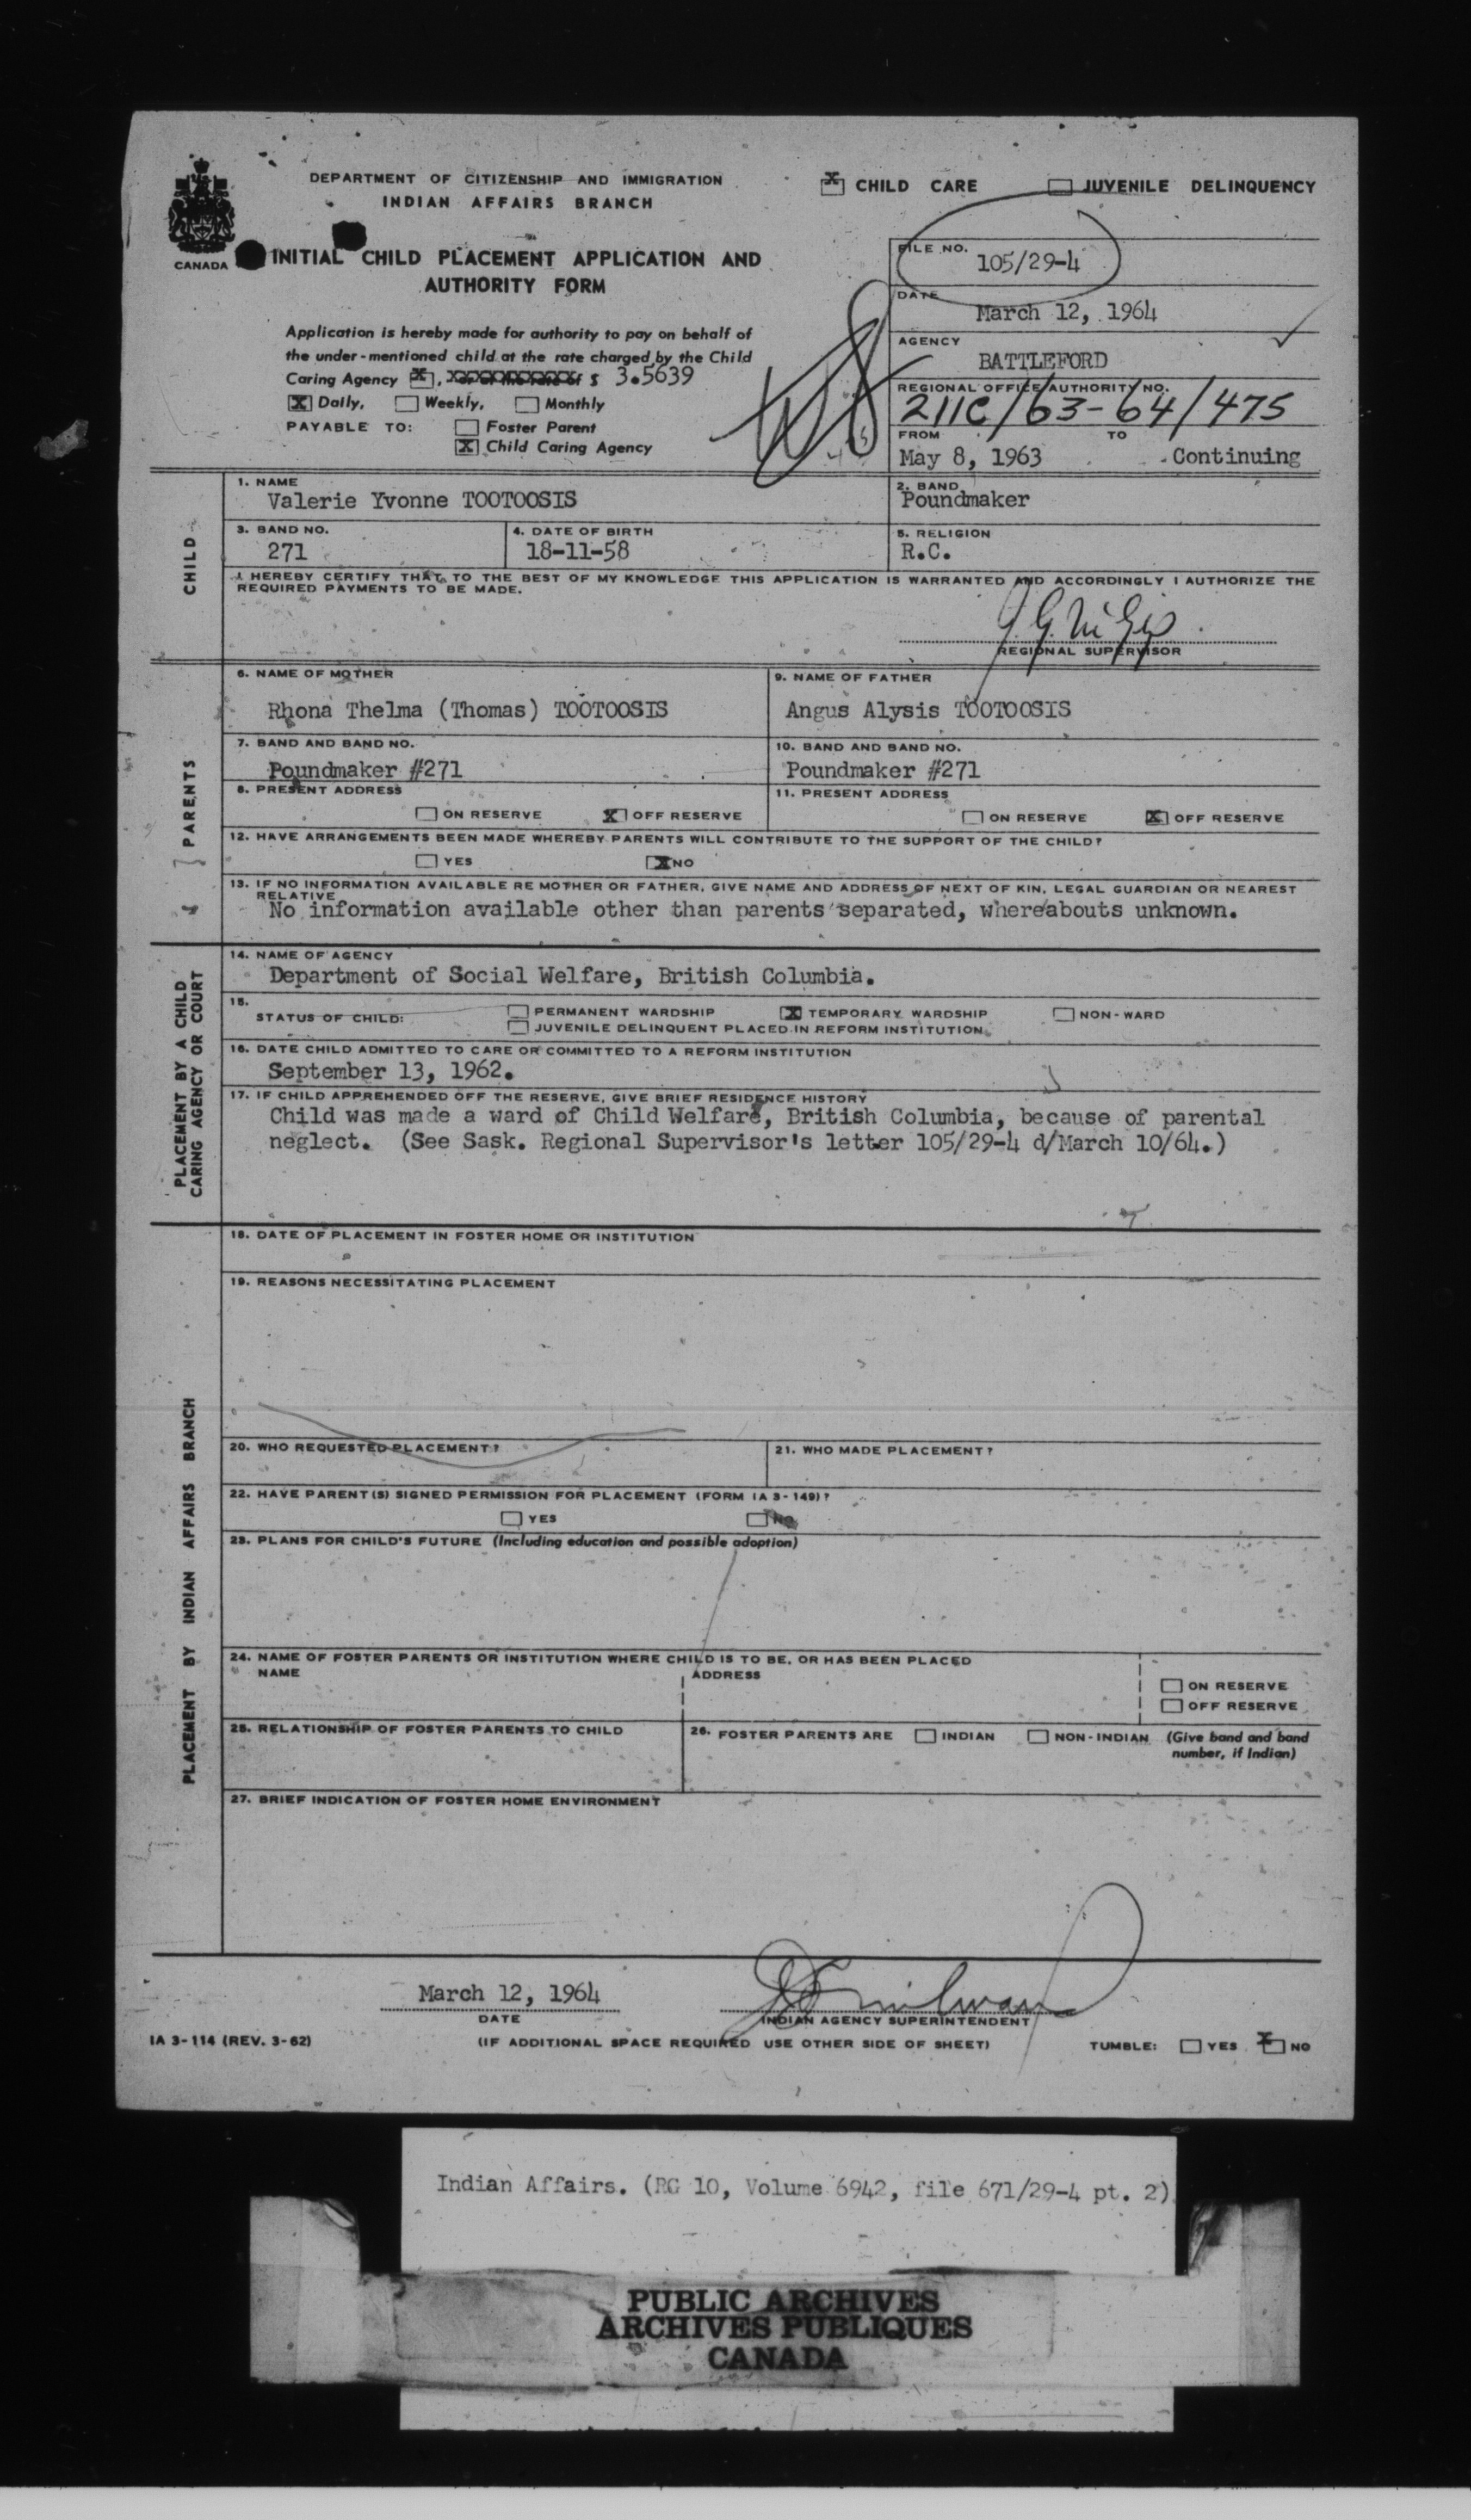 DEPARTMENT OF CITIZENSHIP AND IMMIGRATION
INDIAN AFFAIRS BRANCH
CANADA
INITIAL CHILD PLACEMENT APPLICATION AND
AUTHORITY FORM
X CHILD CARE JUVENILE DELINQUENCY
FILE NO.
105/29-4
DATE
March 12, 1964
AGENCY
BATTLEFORD
REGIONAL OFFICE AUTHORITY NO.
211C/63-64/475
FROM TO
May 8, 1963 Continuing
Application is hereby made for authority to pay on behalf of
the under-mentioned child at the rate charged by the Child
Caring Agency X, or at the rate of $ 3.5639
X Daily, Weekly, Monthly
PAYABLE TO: Foster Parent
X Child Caring Agency
CHILD
1. NAME
Valerie Yvonne TOOTOOSIS
2. BAND
Poundmaker
3. BAND NO.
271
4. DATE OF BIRTH
18-11-58
5. RELIGION
R.C.
I HEREBY CERTIFY THAT TO THE BEST OF MY KNOWLEDGE THIS APPLICATION IS WARRANTED AND ACCORDINGLY I AUTHORIZE THE
REQUIRED PAYMENTS TO BE MADE.
REGIONAL SUPERVISOR
PARENTS
6. NAME OF MOTHER
Rhona Thelma (Thomas) TOOTOOSIS
9. NAME OF FATHER
Angus Alysis TOOTOOSIS
7. BAND AND BAND NO.
Poundmaker #271
10. BAND AND BAND NO.
Poundmaker #271
8. PRESENT ADDRESS
ON RESERVE X OFF RESERVE
11. PRESENT ADDRESS
ON RESERVE X OFF RESERVE
12. HAVE ARRANGEMENTS BEEN MADE WHEREBY PARENTS WILL CONTRIBUTE TO THE SUPPORT OF THE CHILD?
YES X NO
13. IF NO INFORMATION AVAILABLE RE MOTHER OR FATHER, GIVE NAME AND ADDRESS OF NEXT OF KIN, LEGAL GUARDIAN OR NEAREST
RELATIVE
No information available other than parents separated, whereabouts unknown.
PLACEMENT BY A CHILD
CARING AGENCY OR COURT
14. NAME OF AGENCY
Department of Social Welfare, British Columbia.
15.
STATUS OF CHILD: PERMANENT WARDSHIP X TEMPORARY WARDSHIP NON-WARD
JUVENILE DELINQUENT PLACED IN REFORM INSTITUTION
16. DATE CHILD ADMITTED TO CARE OR COMMITTED TO A REFORM INSTITUTION
September 13, 1962.
17. IF CHILD APPREHENDED OFF THE RESERVE, GIVE BRIEF RESIDENCE HISTORY
Child was made a ward of Child Welfare, British Columbia, because of parental
neglect. (See Sask. Regional Supervisor's letter 105/29-4 d/March 10/64.)
PLACEMENT BY INDIAN AFFAIRS BRANCH
18. DATE OF PLACEMENT IN FOSTER HOME OR INSTITUTION
19. REASONS NECESSITATING PLACEMENT
20. WHO REQUESTED PLACEMENT?
21. WHO MADE PLACEMENT?
22. HAVE PARENT(S) SIGNED PERMISSION FOR PLACEMENT (FORM IA 3-149)?
YES NO
23. PLANS FOR CHILD'S FUTURE (Including education and possible adoption)
24. NAME OF FOSTER PARENTS OR INSTITUTION WHERE CHILD IS TO BE, OR HAS BEEN PLACED
NAME ADDRESS
ON RESERVE
OFF RESERVE
25. RELATIONSHIP OF FOSTER PARENTS TO CHILD
26. FOSTER PARENTS ARE INDIAN NON-INDIAN (Give band and band
number, if Indian)
27. BRIEF INDICATION OF FOSTER HOME ENVIRONMENT
March 12, 1964
DATE
INDIAN AGENCY SUPERINTENDENT
IA 3-114 (REV. 3-62)
(IF ADDITIONAL SPACE REQUIRED USE OTHER SIDE OF SHEET)
TUMBLE: YES X NO
Indian Affairs. (RG 10, Volume 6942, file 671/29-4 pt. 2)
PUBLIC ARCHIVES
ARCHIVES PUBLIQUES
CANADA